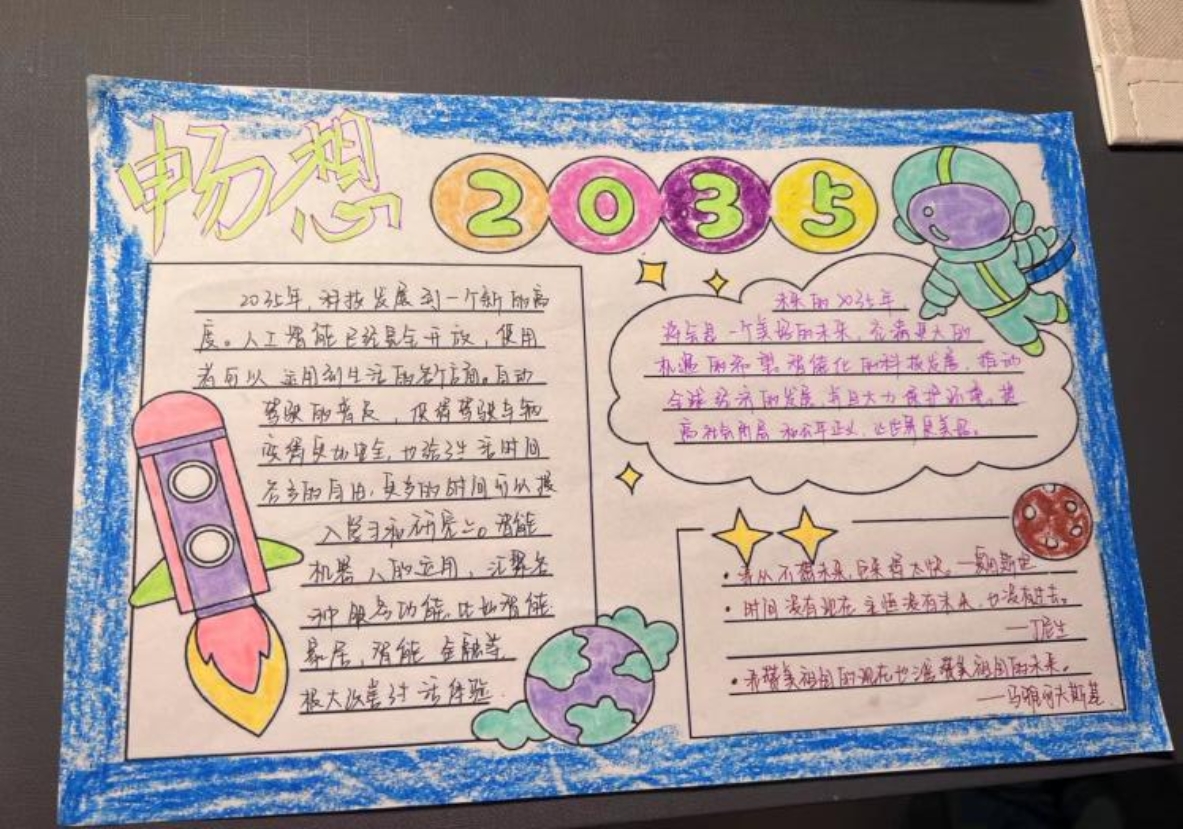 畅想
2035
2035年,科技发展到一个新的高
度。人工智能已经具全开放,使用
者可以运用到生活的各个方面。自动
驾驶的普及,使得驾驶车辆
变得更加安全,也给生活时间
名多的自由,更多的时间可以投
入学习和研究上。智能
机器人的运用,汇聚各
种服务功能,比如智能
家居,智能金融等,
极大改善生活体验
未来的2035年,
将会是一个美好的未来,充满具大的
机遇的和望。智能化的科技发展,推动
全球经济的发展,并且大力保护环境,提
高社会所居和公平正义,让世界更美好。
•我从不想未来,它来得太快。—爱因斯坦
•时间没有现在,永恒没有未来,也没有过去。
——丁尼生
•我赞美祖国的现在也 赞美祖国的未来。
——马雅可夫斯基